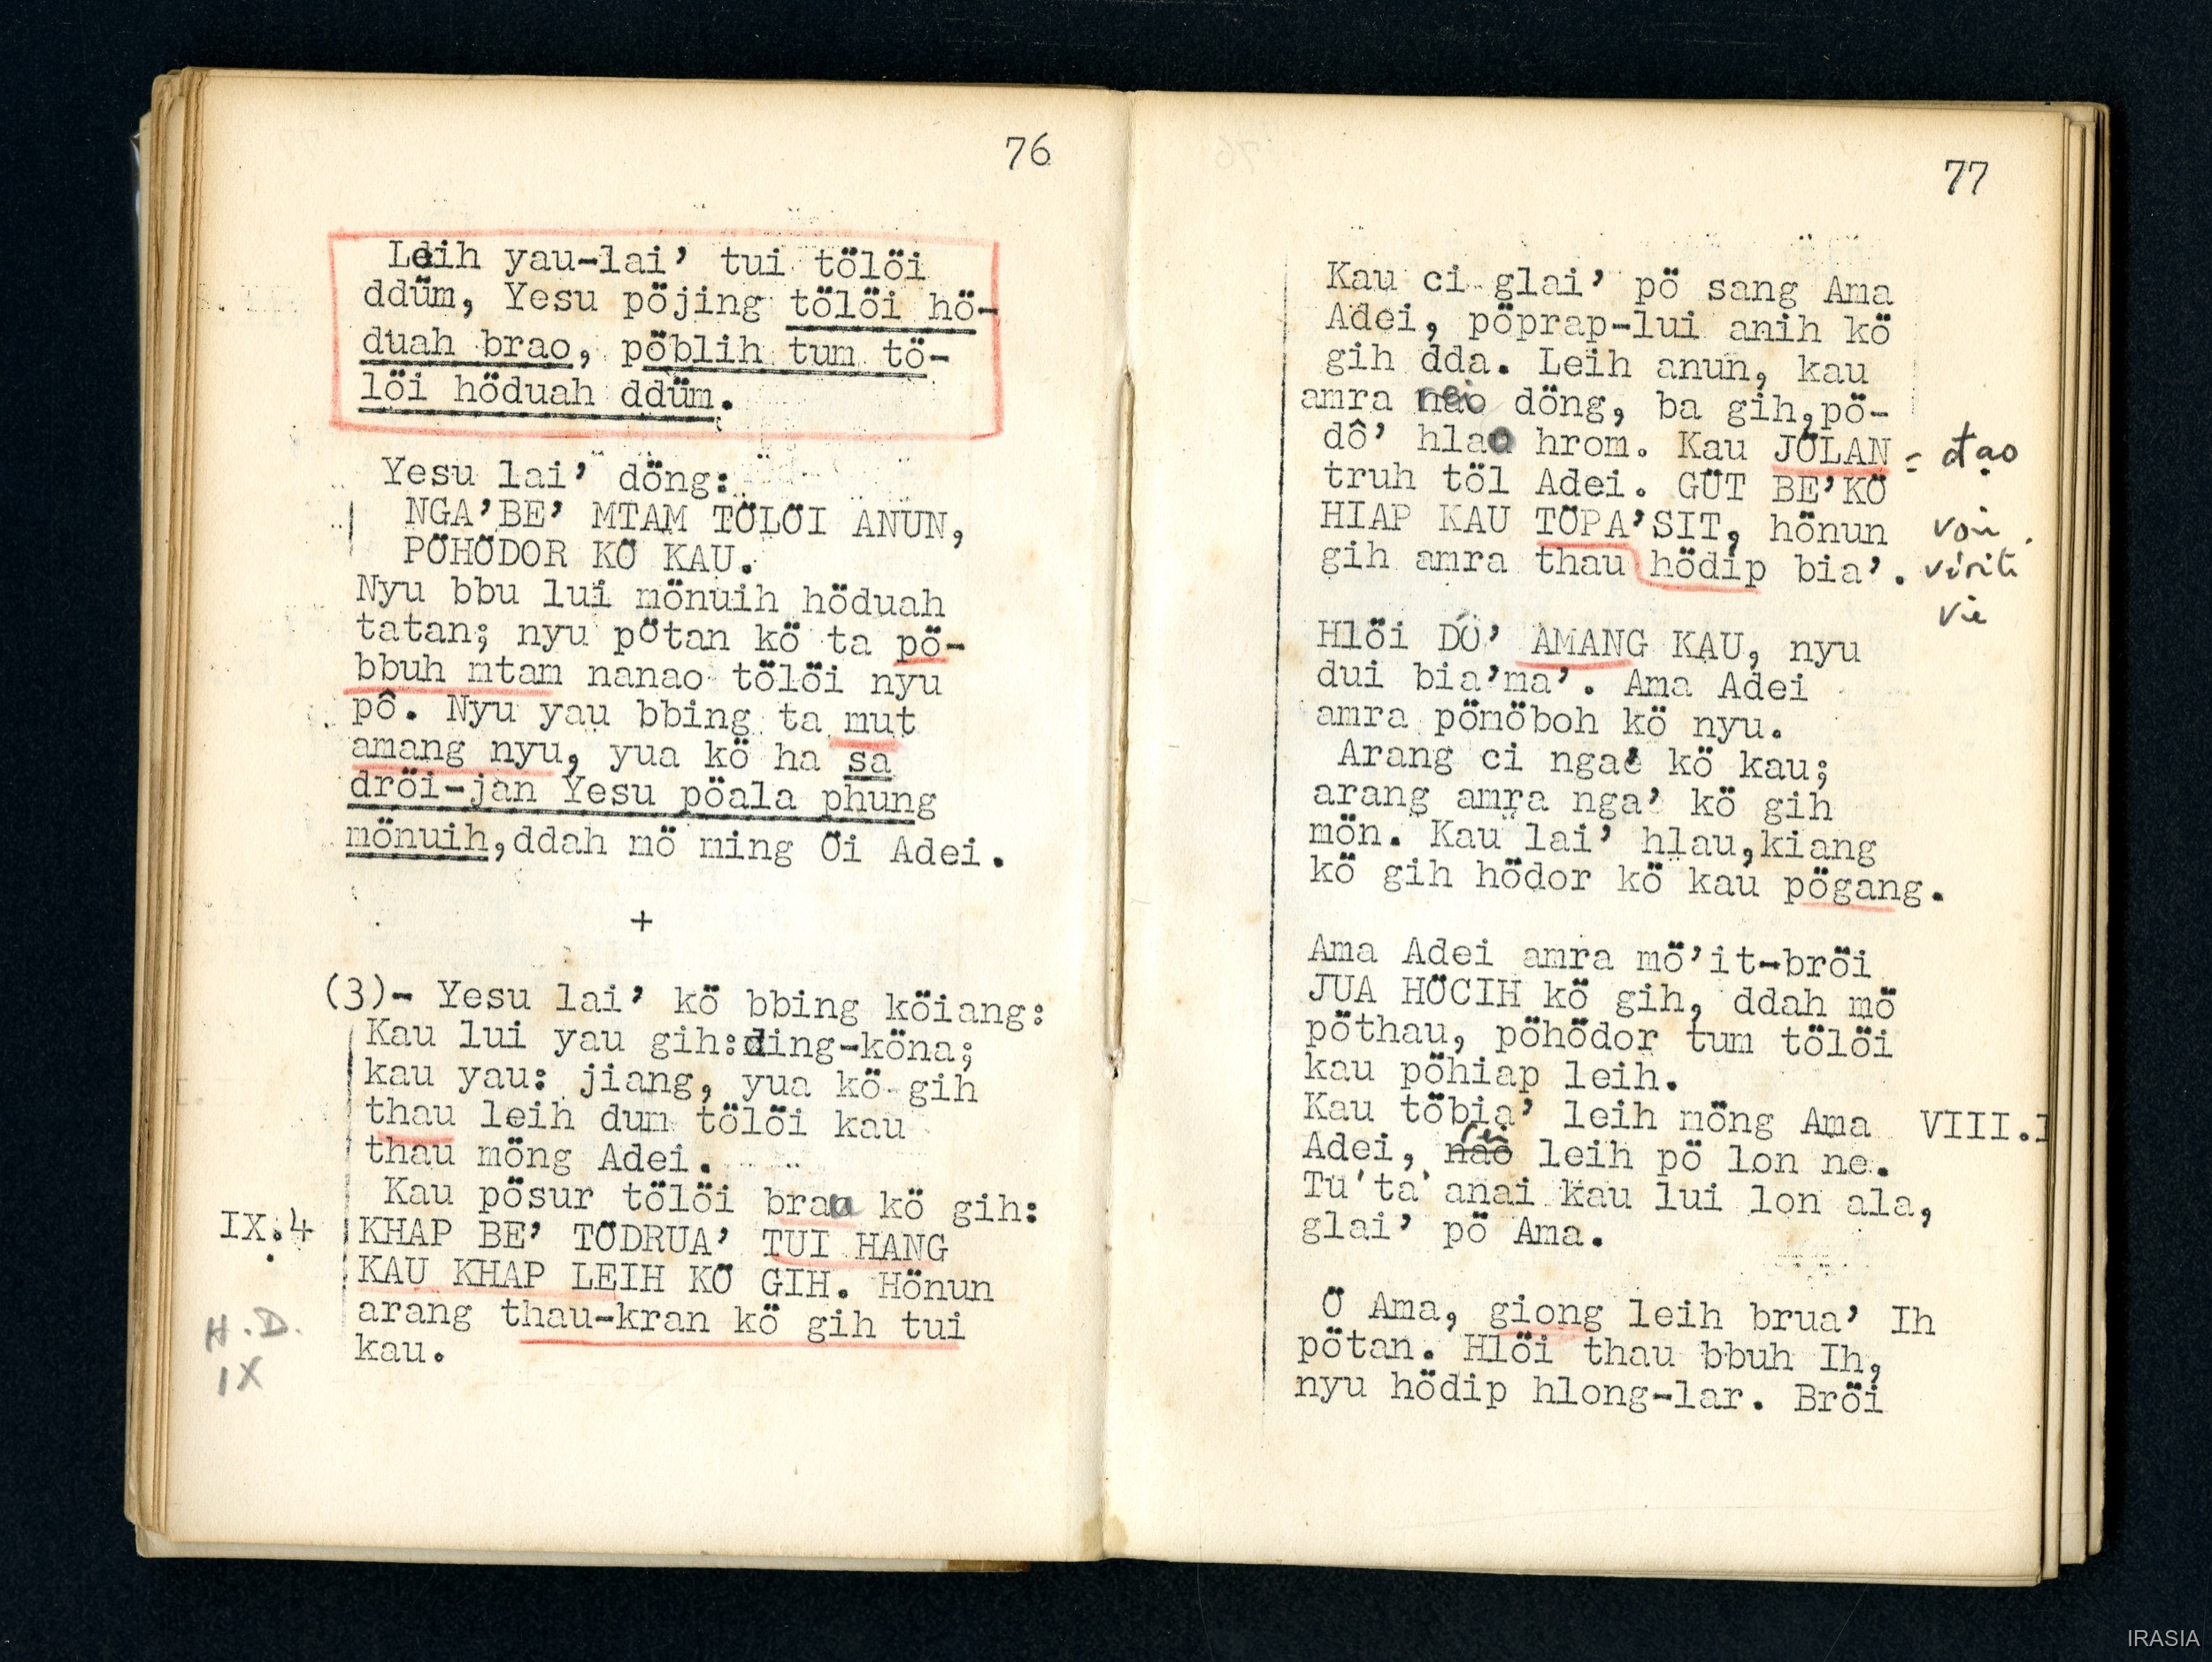 76
Leih yau-lai’ tui tölöi
ddüm, Yesu pöjing tölöi hö-
duah brao, pöblih tum tö-
löi höduah ddüm.
Yesu lai’ döng:
NGA’BE’ MTAM TÖLÖI ANUN,
PÖHÖDOR KÖ KAU.
Nyu bbu lui mönuih höduah
tatan; nyu pötan kö ta pö-
bbuh mtam nanao tölöi nyu
pô. Nyu yau bbing ta mut
amang nyu, yua kö ha sa
dröi-jan Yesu pöala phung
mönuih,ddah mö ming Öi Adei.
+
(3)- Yesu lai’ kö bbing köiang:
Kau lui yau gih:ding-köna;
kau yau: jiang, yua kö gih
thau leih dum tölöi kau
thau möng Adei.
Kau pösur tölöi brau kö gih:
IX.4 KHAP BE’ TÖDRUA’ TUI HANG
KAU KHAP LEIH KÖ GIH. Hönun
H.D. arang thau-kran kö gih tui
IX kau.
77
Kau ci glai’ pö sang Ama
Adei, pöprap-lui anih kö
gih dda. Leih anun, kau
amra döng, ba gih,pö-
dô’ hlao hrom. Kau JÖLAN = đạo
truh töl Adei. GÜT BE’KÖ
HIAP KAU TÖPA’SIT, hönun voie
gih amra thau hödip bia’. vérité
vie
Hlöi DÖ’ AMANG KAU, nyu
dui bia’ma’. Ama Adei
amra pömöboh kö nyu.
Arang ci nga’ kö kau;
arang amra nga’ kö gih
mön. Kau lai’ hlau,kiang
kö gih hödor kö kau pögang.
Ama Adei amra mö’it-bröi
JUA HÖCIH kö gih, ddah mö
pöthau, pöhödor tum tölöi
kau pöhiap leih.
Kau töbia’ leih möng Ama VIII.1
Adei, rei leih pö lon ne.
Tü'ta' anai kau lui lon ala,
glai’ pö Ama.
Ö Ama, giong leih brua’ Ih
pötan. Hlöi thau bbuh Ih,
nyu hödip hlong-lar. Bröi
IRASIA